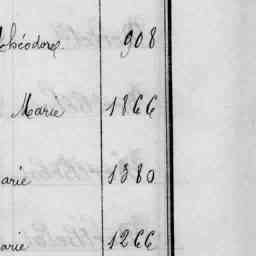 Théodore 908
Marie 1866
arie 1380
arie 1266